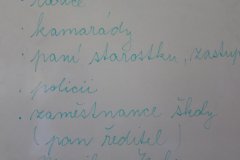 · kamarády
· paní starostku, zastup
· policii
· zaměstnance školy
( pan ředitel )